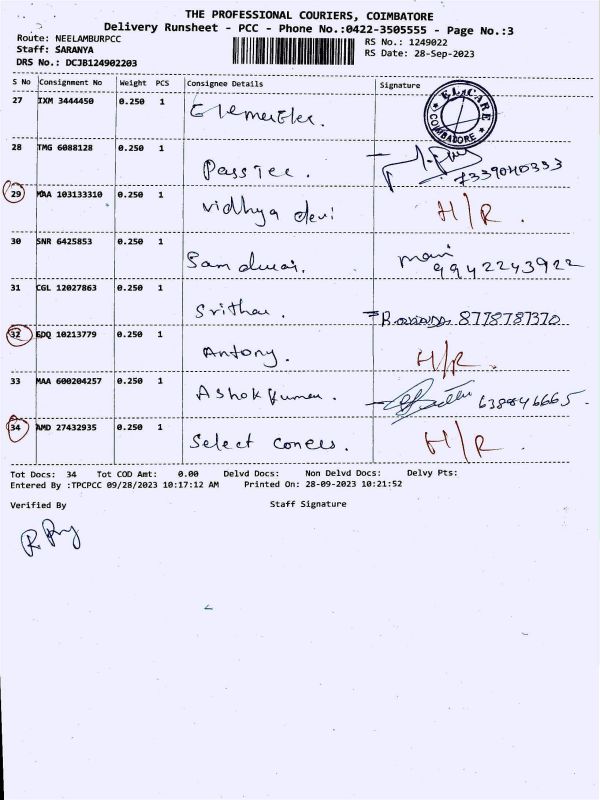 THE PROFESSIONAL COURIERS, COIMBATORE
Delivery Runsheet - PCC - Phone No.:0422-3505555 - Page No.:3
Route: NEELAMBURPCC
RS No.: 1249022
Staff: SARANYA
RS Date: 28-Sep-2023
DRS No.: DCJB124902203
S No Consignment No Weight PCS Consignee Details Signature
27 IXM 3444450 0.250 1
EL CARE COIMBATORE
28 TMG 6088128 0.250 1 Pass Tee. 7339040353
29 MAA 103133310 0.250 1 Vidhya devi H/R.
30 SNR 6425853 0.250 1 mani 9942243922
31 CGL 12027863 0.250 1 8778787370
32 EDQ 10213779 0.250 1 Antony. H/R.
33 MAA 600204257 0.250 1 Ashok Kumar.
34 AMD 27432935 0.250 1 Select H/R.
Tot Docs: 34 Tot COD Amt: 0.00 Delvd Docs: Non Delvd Docs: Delvy Pts:
Entered By :TPCPCC 09/28/2023 10:17:12 AM Printed On: 28-09-2023 10:21:52
Verified By Staff Signature